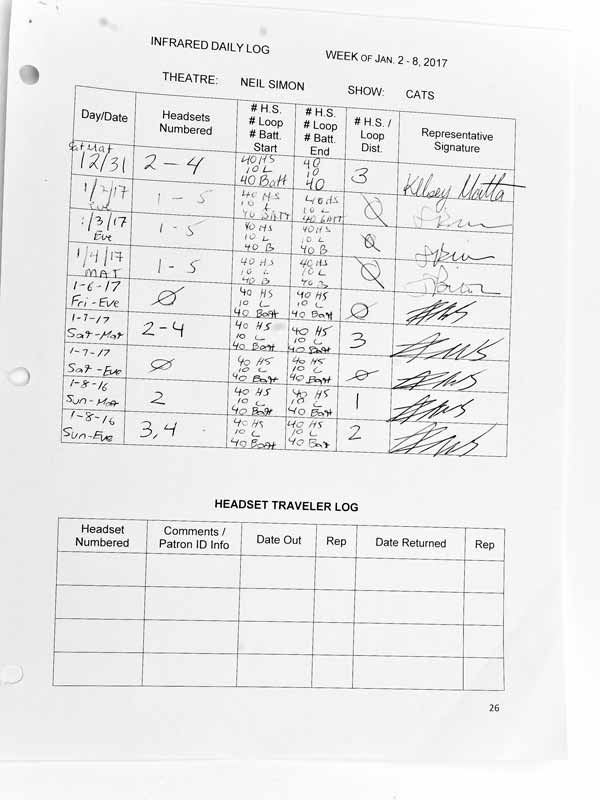 INFRARED DAILY LOG WEEK OF JAN. 2 - 8, 2017
THEATRE: NEIL SIMON SHOW: CATS
Day/Date Headsets Numbered # H.S. # Loop # Batt. Start # H.S. # Loop # Batt. End # H.S. / Loop Dist. Representative Signature
Sat Mat 12/31 2 - 4 40 HS 10 L 40 Batt 40 10 40 3 Kelsey
1/2/17 Eve 1 - 5 40 H.S. 10 L 40 BATT 40 HS 10 L 40 BATT Ø
1/3/17 Eve 1 - 5 40 HS 10 L 40 B 40 HS 10 L 40 B Ø
1/4/17 MAT 1 - 5 40 HS 10 L 40 B 40 HS 10 L 40 B Ø
1-6-17 Fri-Eve Ø 40 HS 10 L 40 Batt 40 HS 10 L 40 Batt Ø
1-7-17 Sat-Mat 2-4 40 HS 10 L 40 Batt 40 HS 10 L 40 Batt 3
1-7-17 Sat-Eve Ø 40 HS 10 L 40 Batt 40 HS 10 L 40 Batt Ø
1-8-16 Sun-Mat 2 40 HS 10 L 40 Batt 40 HS 10 L 40 Batt 1
1-8-16 Sun-Eve 3,4 40 HS 10 L 40 Batt 40 HS 10 L 40 Bat 2
HEADSET TRAVELER LOG
Headset Numbered Comments / Patron ID Info Date Out Rep Date Returned Rep
26